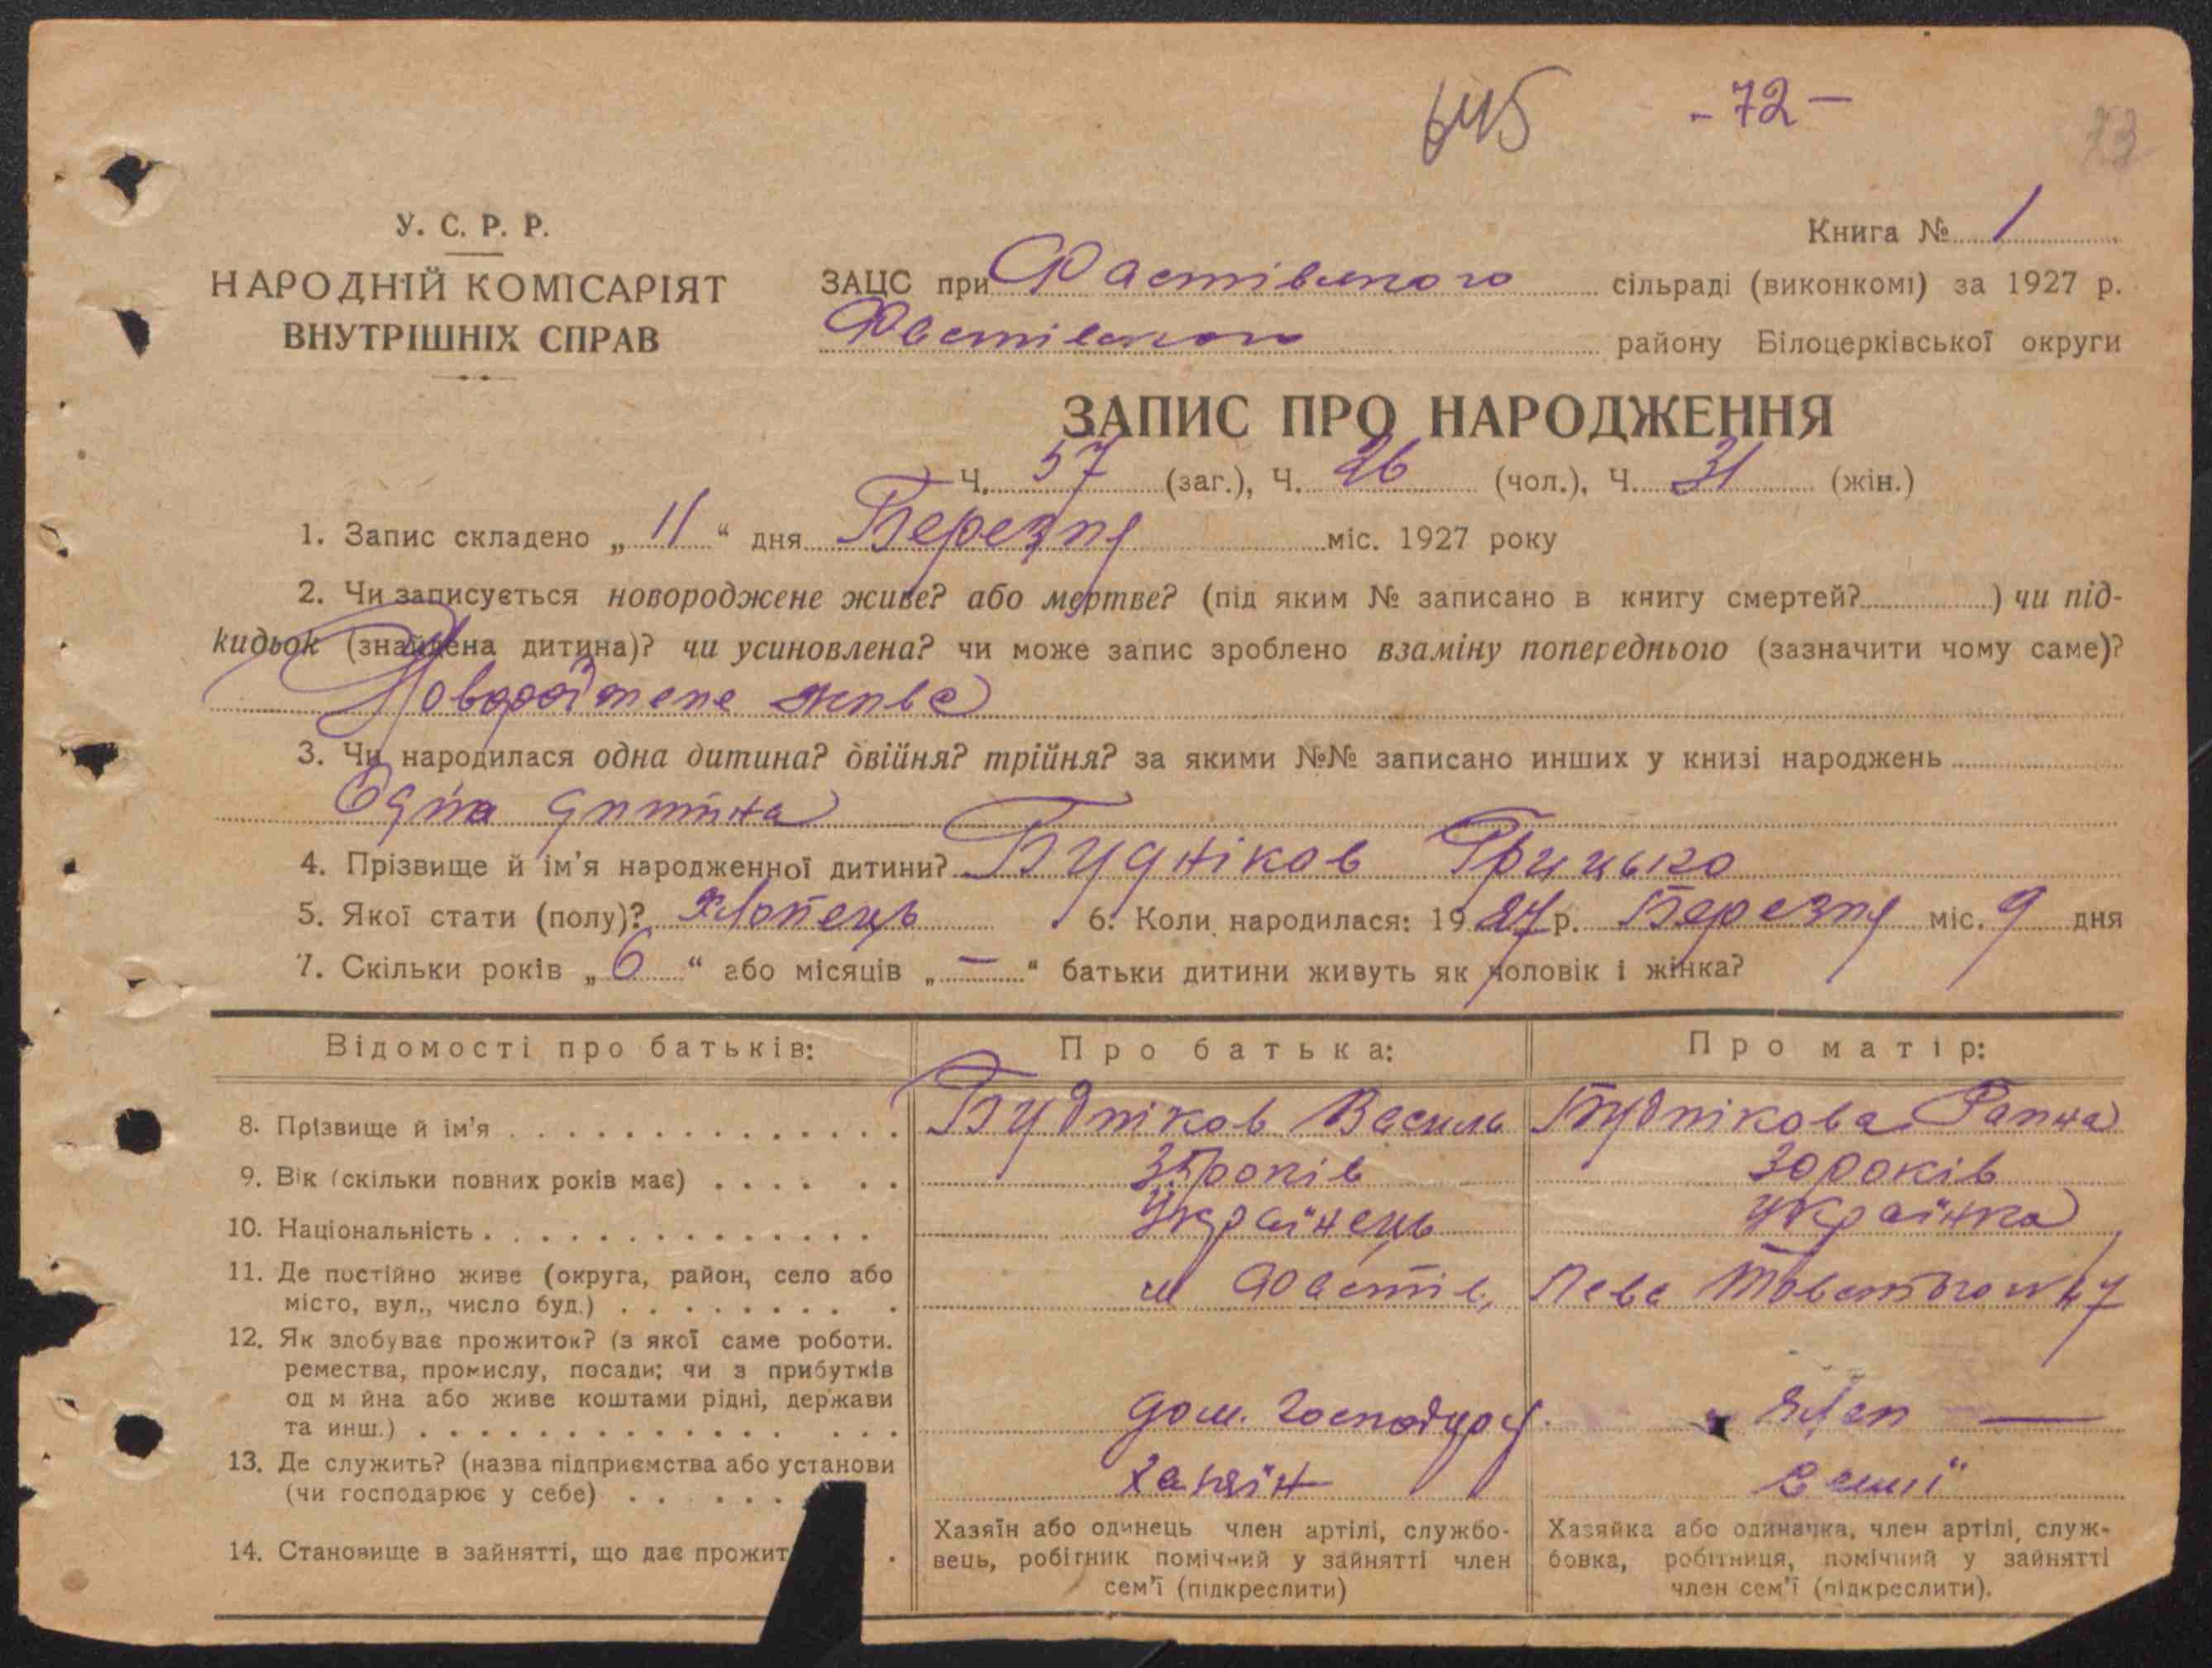 645 - 72 - 73
У. С. Р. Р.
Книга № 1
НАРОДНІЙ КОМІСАРІЯТ
ВНУТРІШНІХ СПРАВ
ЗАЦС при Фастівського сільраді (виконкомі) за 1927 р.
Фастівського району Білоцерківської округи
ЗАПИС ПРО НАРОДЖЕННЯ
Ч. 57 (заг.), Ч. 26 (чол.), Ч. 31 (жін.)
1. Запис складено „ 11 “ дня Березня міс. 1927 року
2. Чи записується новороджене живе? або мертве? (під яким № записано в книгу смертей? ) чи під-
кидьок (знайдена дитина)? чи усиновлена? чи може запис зроблено взаміну попереднього (зазначити чому саме)?
Новороджене живе
3. Чи народилася одна дитина? двійня? трійня? за якими №№ записано инших у книзі народжень
Одна дитина
4. Прізвище й ім’я народженної дитини? Будніков Грицько
5. Якої стати (полу)? Хлопець 6. Коли народилася: 1927 р. Березня міс. 9 дня
7. Скільки років „ 6 “ або місяців „ — “ батьки дитини живуть як чоловік і жінка?
Відомості про батьків: Про батька: Про матір:
8. Прізвище й ім’я Будніков Василь Буднікова Ганна
9. Вік (скільки повних років має) 35 років 30 років
10. Національність Українець Українка
11. Де постійно живе (округа, район, село або
місто, вул., число буд.) м Фастів,
12. Як здобуває прожиток? (з якої саме роботи.
ремества, промислу, посади; чи з прибутків
од м йна або живе коштами рідні, держави
та инш.) дом. господар. Член —
13. Де служить? (назва підприємства або установи
(чи господарює у себе) Хазяїн семії
14. Становище в зайнятті, що дає прожит
Хазяїн або одинець член артілі, службо-
вець, робітник помічний у зайнятті член
сем’ї (підкреслити)
Хазяйка або одиначка, член артілі, служ-
бовка, робітниця, помічний у зайнятті
член сем’ї (підкреслити).